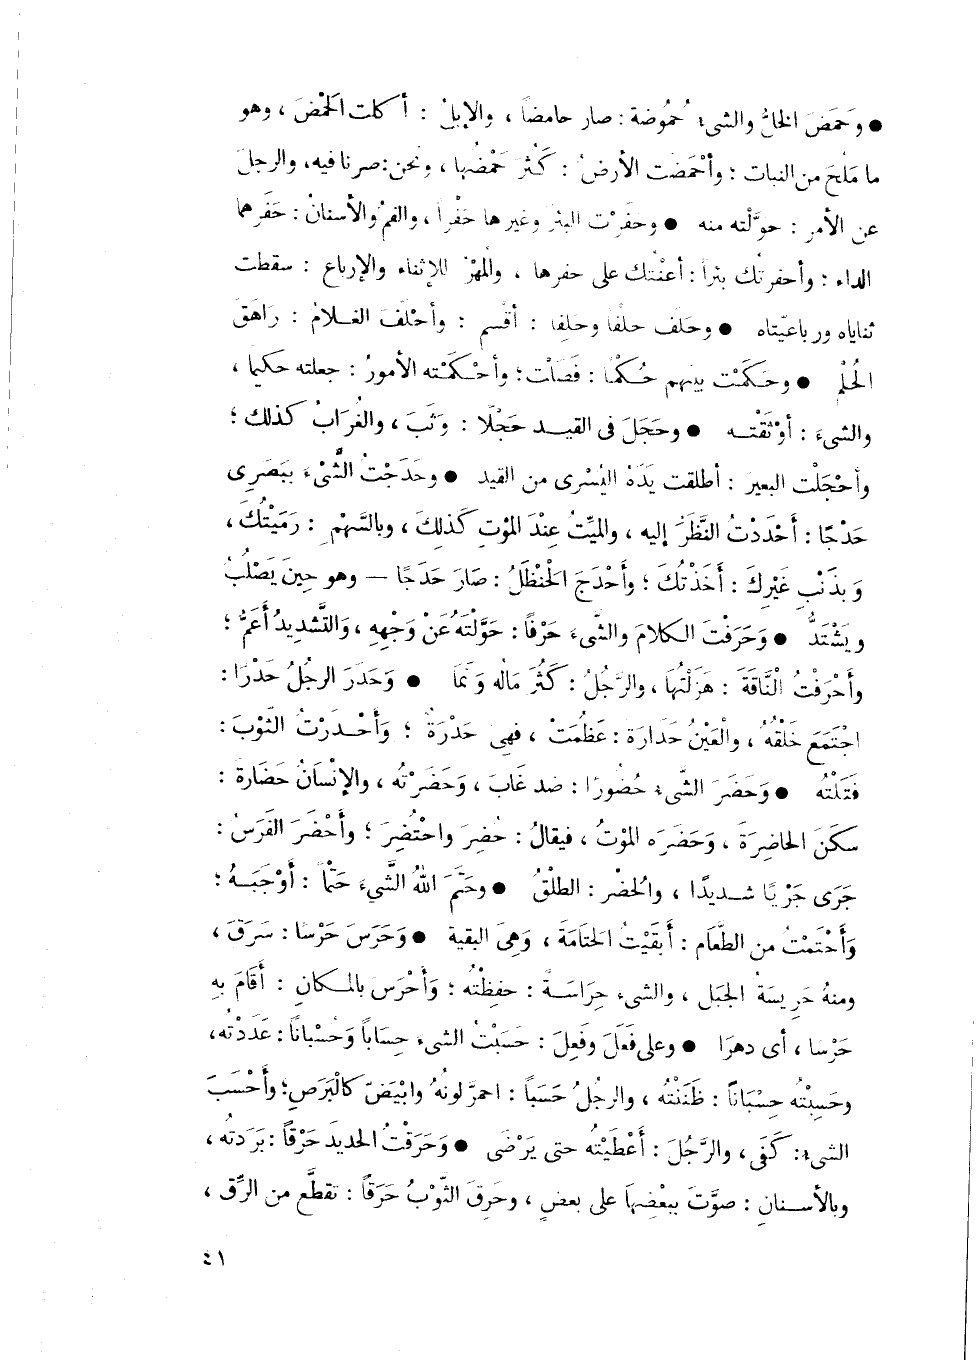 ● وَحَمَضَ الخلُّ والشىءُ حُمُوضة : صار حامضاً ، والإبلُ : أكلت الحَمْضَ ، وهو
ما مَلُحَ من النبات ؛ وأحْمَضَت الأرضُ : كَثُرَ حَمْضُها ، ونحن : صرنا فيه ، والرجلَ
عن الأمر : حوَّلته منه ● وحَفَرْت البئرَ وغيرها حَفْراً ، والفمُ والأسنانُ : حَفَرهما
الداء ؛ وأحفرتُك بئراً : أعنْتك على حفرها ، والمُهْرُ للإثناء والإرباع : سقطت
ثناياه ورباعيّتاه ● وحلَف حلفًا وحلِفا : أقسم ؛ وأحْلَفَ الغـلامُ : رَاهَقَ
الحُلْمَ ● وحَكَمْت بينهم حُـكْمًا : فَصَلْت ؛ وأحْـكَمَتْه الأمورُ : جعلته حكيما ،
والشىءَ : أوْثَقْتـه ● وحَجَلَ فى القيـد حَجْلًا : وَثَبَ ، والغُرَابُ كذلك ؛
وأحْجَلْت البعير : أطلقت يَدَهُ اليُسْرى من القيد ● وحَدَجْتُ الشَّىْءَ بِبَصَرِى
حَدْجًا : أَحْدَدْتُ النَّظَرَ إليه ، والميِّتُ عِنْدَ المَوْتِ كَذلِكَ ، وبالسَّهْمِ : رَمَيْتُكَ ،
وَبِذَنْبِ غَيْرِكَ : أَخَذْتُكَ ؛ وأَحْدَجَ الحَنْظَلُ : صَارَ حَدَجًا – وهو حِينَ يَصْلُبُ
ويَشْتَدُّ ● وَحَرَفْتَ الكلامَ والشَّىءَ حَرْفًا : حَوَّلْتَهُ عَنْ وَجْهِهِ ، وَالتَّشْدِيدُ أَعَمُّ ؛
وأَحْرَفْتُ النَّاقَةَ : هَزَلْتُهَا ، والرَّجُلُ : كَثُرَ مَالُه وَنَمَا ● وَحَدَرَ الرجُلُ حَدْرًا :
اجْتَمَعَ خَلْقُهُ ، والْعَيْنُ حَدَارَة : عَظُمَتْ ، فهِى حَدْرَةٌ ؛ وَأَحْـدَرْتُ الثَوْبَ :
فَتَلْتُه ● وَحَضَرَ الشَّىءُ حُضُورًا : ضد غَابَ ، وَحَضَرْتُه ، والإنْسَانُ حَضَارةً :
سكَنَ الحاضِرَةَ ، وَحَضَرَه المَوْتُ ، فيقالُ : حُضِرَ واحْتُضِرَ ؛ وأَحْضَرَ الفَرَسُ :
جَرَى جَرْيًا شـديدًا ، والحُضْر : الطلْقُ ● وحَتَّمَ اللهُ الشَّىءَ حَتْمًا : أَوْجَبَـهُ ؛
وَأَحْتَمْتُ من الطَّعَام : أَبقَيْتُ الحَتَامَةَ ، وَهِىَ البقية ● وَحَرَسَ حَرْسًا : سَرَقَ ،
ومنهُ حَرِيسَةُ الجَبَل ، والشىءَ حِرَاسَـةً : حفِظْتُه ؛ وَأَحْرَسَ بالمـكانِ : أَقَامَ بِهِ
حَرْسا ، أى دهرَا ● وعلى فَعَلَ وفَعِلَ : حَسَبْتُ الشىءَ حِسَاباً وَحُسْبَاناً : عَدَدْتُه ،
وحَسِبْتُه حِسْبَاناً : ظَنَنْتُه ، والرجلُ حَسَباً : احمرَّ لونُهُ وابْيَضَّ كَالْبَرَصِ ؛ وأَحْسَبَ
الشىءُ : كَفَى ، والرَّجُلَ : أَعْطَيْتُه حتى يَرْضَى ● وَحَرَقْتُ الحديدَ حَرْقاً : بَرَدتُه ،
وبالأسـنانِ : صوَّتَ ببَعْضِهاَ على بعضٍ ، وحَرِقَ الثوْبُ حَرَقاً : تقطَّع من الدَّقِّ ،
٤١